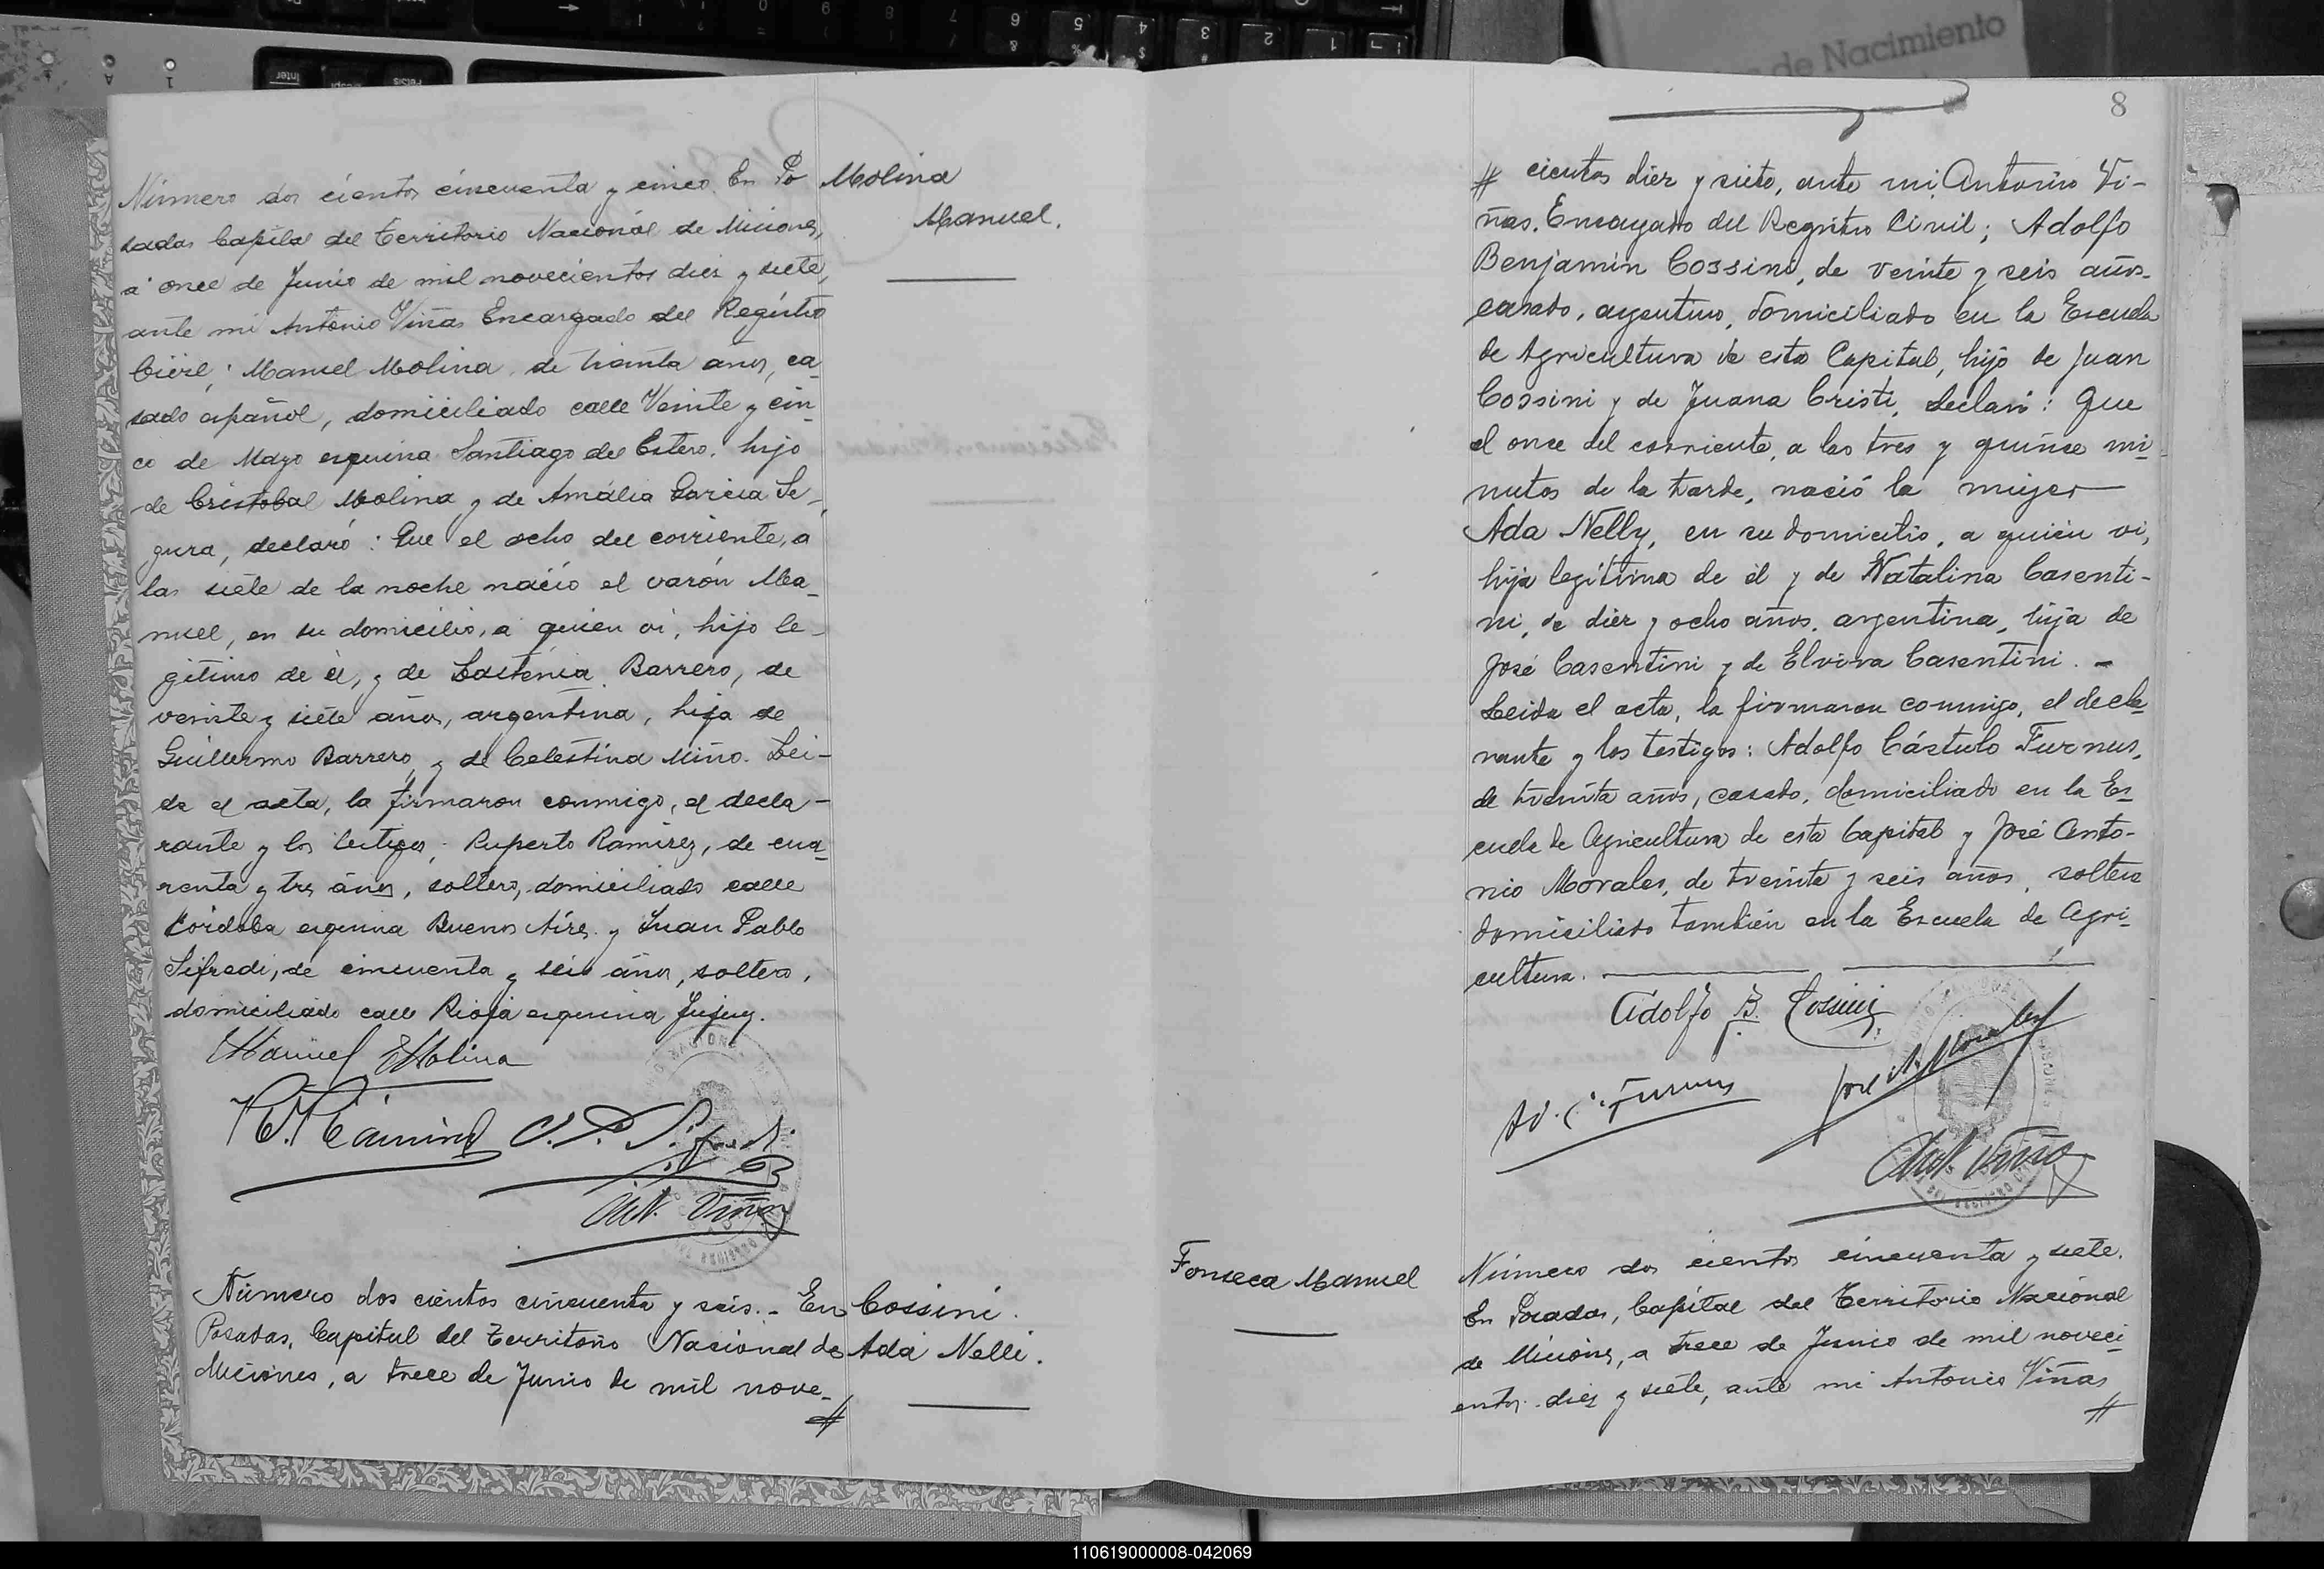 de Nacimiento
Molina
Manuel.
Número dos cientos cincuenta y cinco. En Po
sadas Capital del Territorio Nacional de Miciones,
a once de Junio de mil novecientos diez y siete,
ante mi Antonio Viñas Encargado del Registro
Civil; Manuel Molina, de treinta años, ca_
sado español, domiciliado calle Veinte y cin_
co de Mayo esquina Santiago del Estero, hijo
de Cristobal Molina y de Amalia Garcia Se_
gura, declaró: Que el ocho del corriente, a
las siete de la noche nació el varón Ma_
nuel, en su domicilio, a quien vi, hijo le_
gitimo de él, y de Lastenia Barrero, de
veinte y siete años, argentina, hija de
Guillermo Barrero y de Celestina Miño. Lei-
da el acta, la firmaron conmigo, el decla-
rante y los testigos; Ruperto Ramirez, de cua_
renta y tres años, soltero, domiciliado calle
Córdoba esquina Buenos Aires y Juan Pablo
Sifredi, de cincuenta y seis años, soltero,
domiciliado calle Rioja esquina Jujuy.
Manuel Molina
R. Ramirez J. P. Sifredi
Ant. Viñas
Cossini.
Ada Nelli.
Número dos cientos cincuenta y seis.- En
Posadas, Capital del Territorio Nacional de
Miciones, a trece de Junio de mil nove_
#
8
# cientos diez y siete, ante mi Antonio Vi-
ñas. Encargado del Registro Civil; Adolfo
Benjamin Cossini, de veinte y seis años.
casado, argentino, domiciliado en la Escuela
de Agricultura de esta Capital, hijo de Juan
Cossini y de Juana Cristi, declaró: Que
el once del corriente, a las tres y quinse mi_
nutos de la tarde, nació la mujer
Ada Nelly, en su domicilio, a quien vi,
hija legitima de él y de Natalina Casenti-
ni, de diez y ocho años, argentina, hija de
José Casentini y de Elvira Casentini. -
Leida el acta, la firmaron conmigo, el decla_
rante y los testigos: Adolfo Cástulo Furnus,
de treinta años, casado, domiciliado en la Es_
cuela de Agricultura de esta Capital y José Anto-
nio Morales, de treinta y seis años, soltero
domiciliado tambien en la Escuela de Agri_
cultura.
Adolfo B. Cossini
Ad. C. Furnus
José A. Morales
Ant. Viñas
Fonseca Manuel
Número dos cientos cincuenta y siete.
En Posadas, Capital del Territorio Nacional
de Miciones, a trece de Junio de mil noveci_
entos diez y siete, ante mi Antonio Viñas
#
110619000008-042069